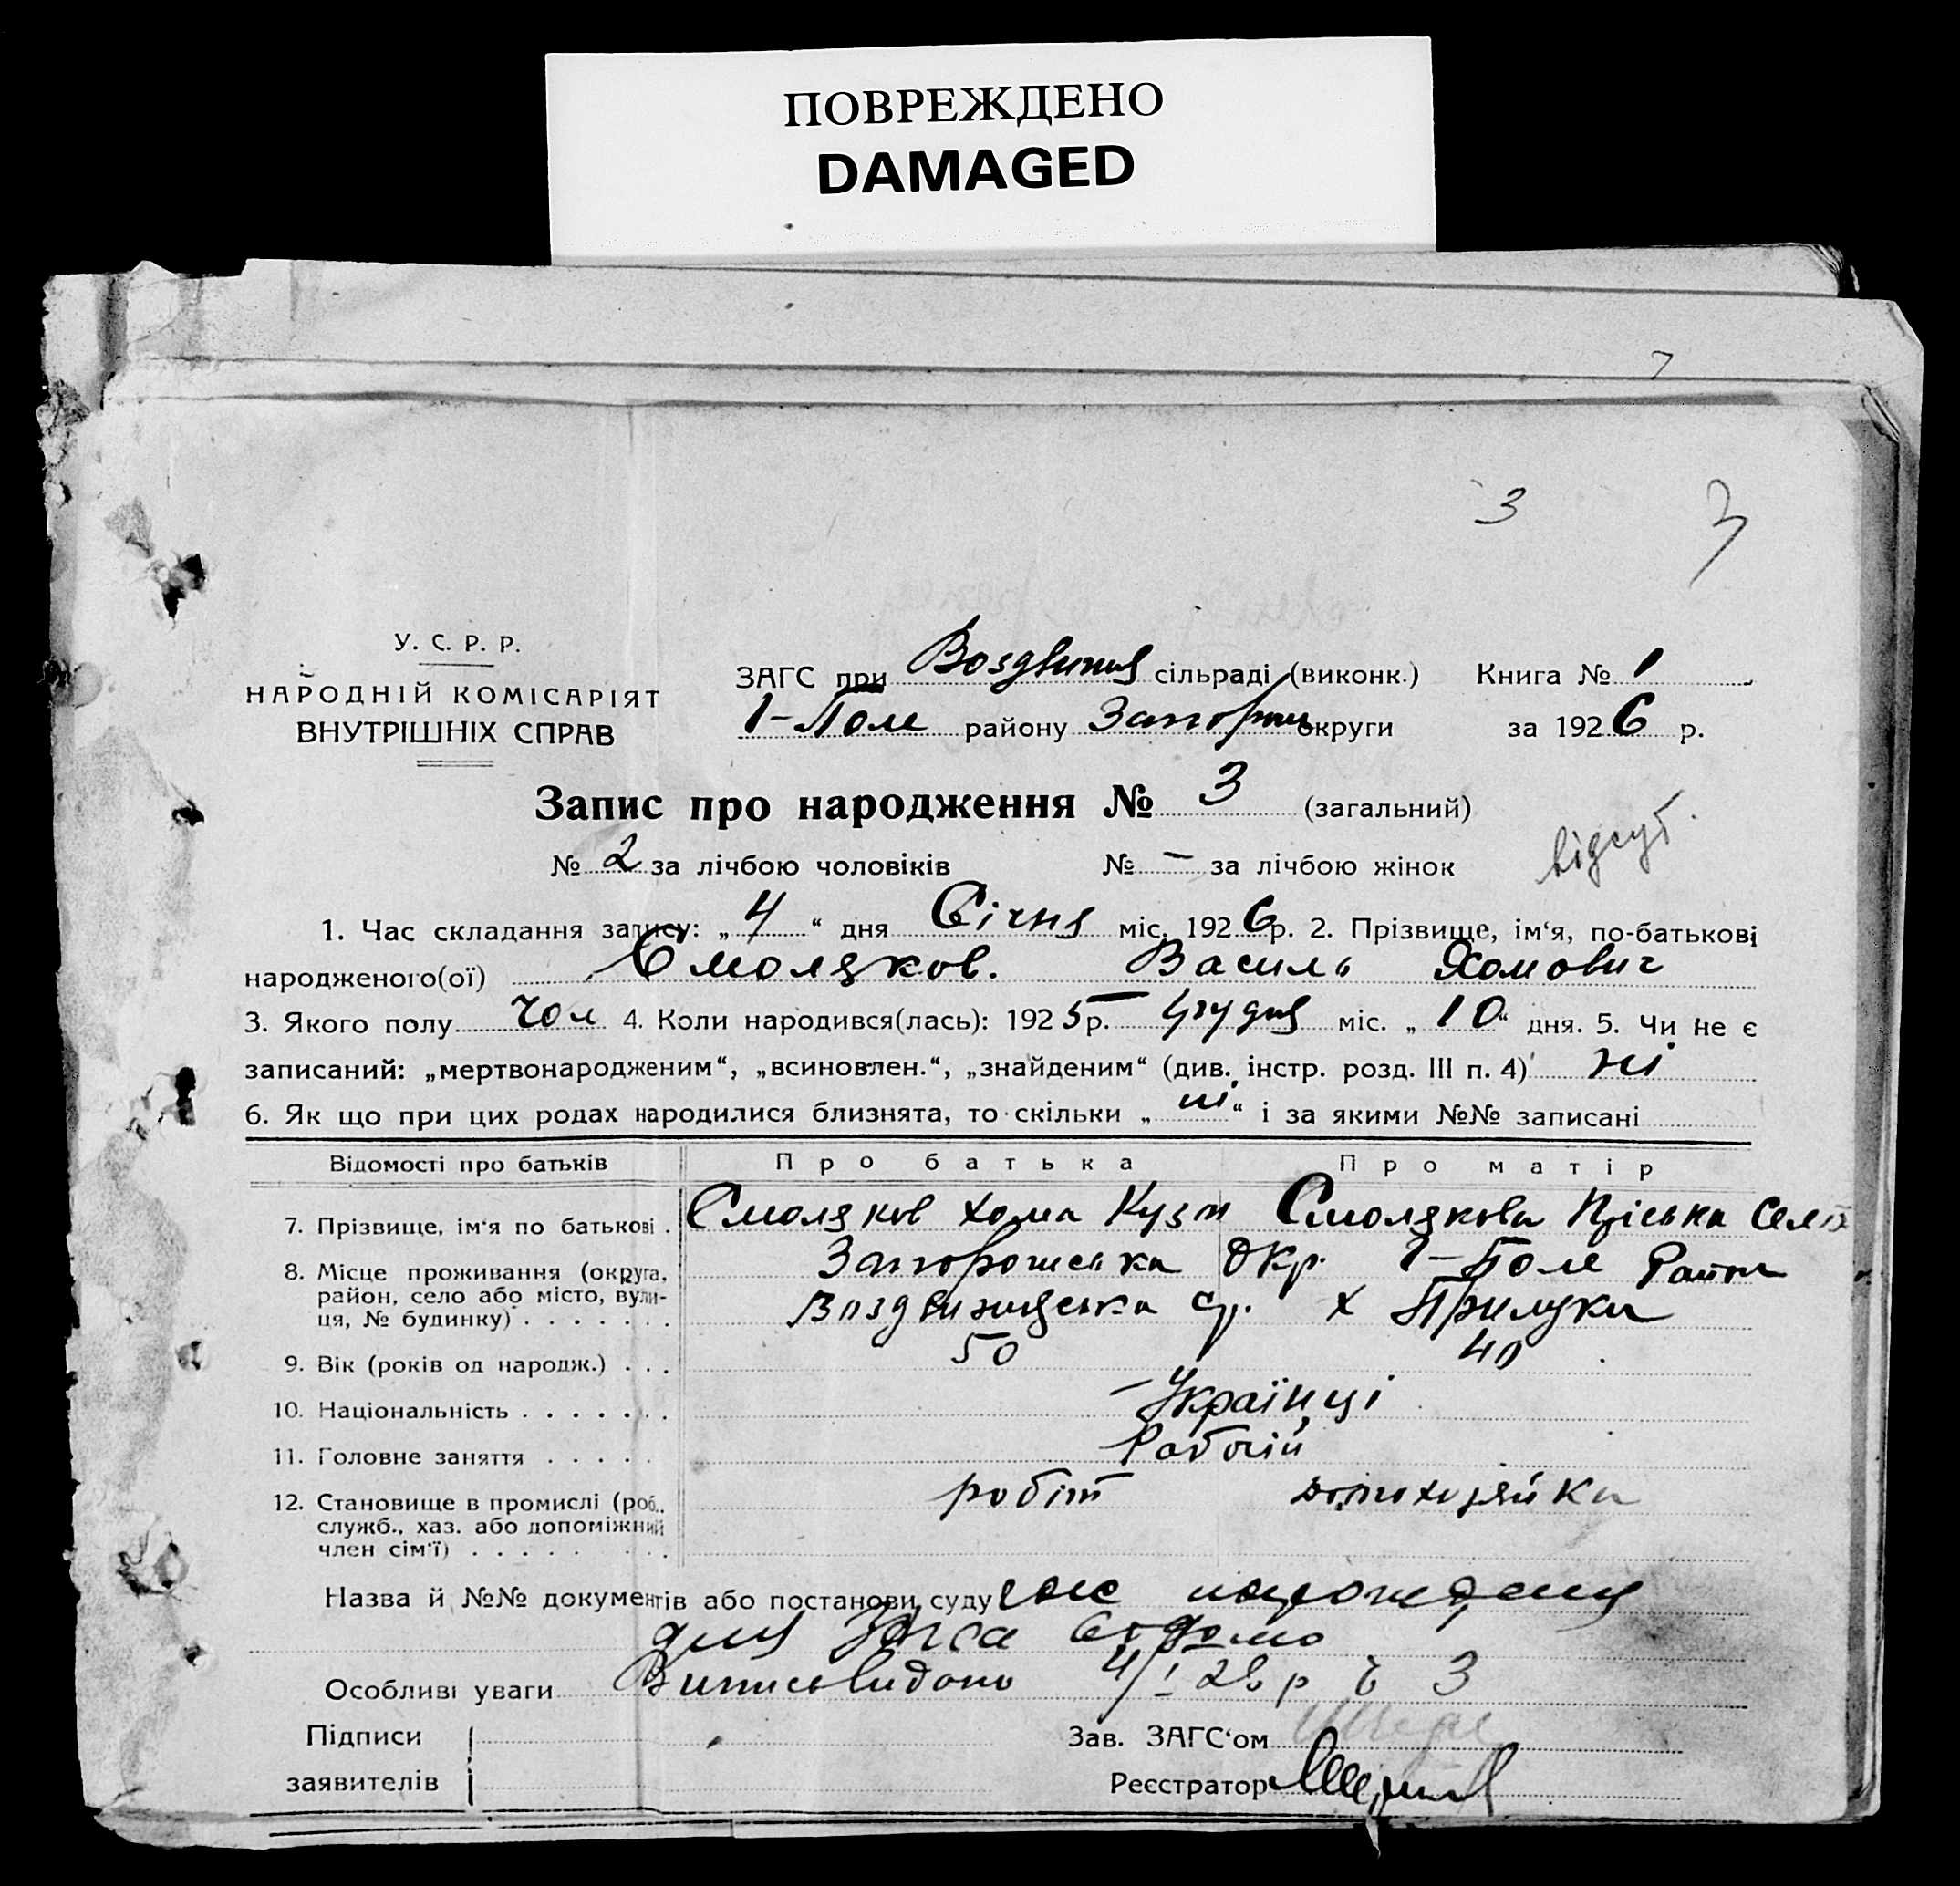 ПОВРЕЖДЕНО
DAMAGED
7
3 3
У. С. Р. Р.
НАРОДНІЙ КОМІСАРІЯТ
ВНУТРІШНІХ СПРАВ
ЗАГС при сільраді (виконк.) Книга № 1
1-Поле району округи за 1926 р.
Запис про народження № 3 (загальний)
№ 2 за лічбою чоловіків № - за лічбою жінок
відсут.
1. Час складання запису: „4“ дня Січня міс. 1926 р. 2. Прізвище, ім‘я, по-батькові
народженого(ої) Смоляков. Василь Хомович
3. Якого полу чол 4. Коли народився(лась): 1925 р. Грудня міс. „10“ дня. 5. Чи не є
записаний: „мертвонародженим“, „всиновлен.“, „знайденим“ (див. інстр. розд. III п. 4) ні
6. Як що при цих родах народилися близнята, то скільки „ні“ і за якими №№ записані
Відомості про батьків Про батька Про матір
7. Прізвище, ім‘я по батькові . Смоляков Хома Кузм Смолякова Пріська
8. Місце проживання (округа, Запорожська Окр. 1-Поле Район
район, село або місто, вули-
ця, № будинку) . . . . . . . Воздвижуська ср. х Прилуки
9. Вік (років од народж.) . . . 50 40
10. Національність . . . . . . . Українці
11. Головне заняття . . . . . Рабочій
12. Становище в промислі (роб., робіт домохозяйка
служб., хаз. або допоміжний
член сім‘ї) . . . . . . . .
Назва й №№ документів або постанови суду
для
Особливі уваги Випись видано 4/I 28 р 3
Підписи Зав. ЗАГС‘ом
заявителів Реєстратор